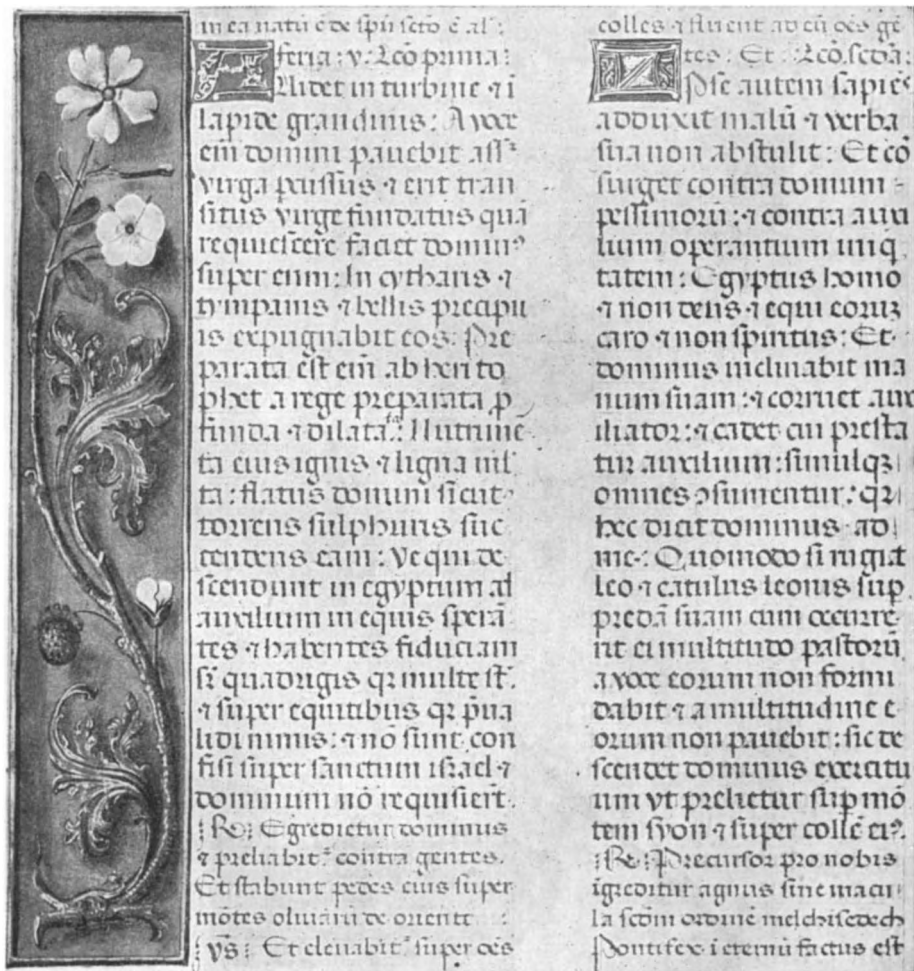 in ea natū ē de spū scto ē al :
feria : v. Lcō prima :
Allidet in turbine ⁊ ī
lapide grandinis : A voce
eīm domini pavebit ass
virga pcussus ⁊ erit tran
situs virge fundatus quā
requiescere faciet dominꝰ
super eum : In cytharis ⁊
tympanis ⁊ bellis precipu
is expugnabit eos : Pre
parata est eīm ab heri to
phet a rege preparata ꝓ
funda ⁊ dilatata : Nutrime
ta eius ignis ⁊ ligna ml
ta : flatus domini sicut
torrens sulphuris suc
cendens eam : Ve qui de
scendunt in egyptum al
auxilium in equis sperā
tes ⁊ habentes fiduciam
sꝑ quadrigis qꝛ multe st̄ .
⁊ super equitibus qꝛ p̄ua
lidi nimis : ⁊ nō sunt con
fisi super sanctum israel ⁊
dominum nō requisiert .
℟ : Egredietur dominus
⁊ preliabit᷑ contra gentes .
Et stabunt pedes eius super
mōtes olivarū de oriente :
VS : Et elevabit᷑ super oēs
colles ⁊ fluent ad eū oēs gē
tes : Et : Lcō . scda :
Ipse autem sapiēs
adduxit malū ⁊ verba
sua non abstulit : Et cō
surget contra domum
pessimorū : ⁊ contra auxi
lium operantium iniq
tatem : Egyptus homo
⁊ non deus ⁊ equi eorūꝫ
caro ⁊ non spiritus : Et
dominus inclinabit ma
num suam : ⁊ corruet aux
iliator : ⁊ cadet cui presta
tur auxilium : simulqꝫ
omnes ꝯsumentur : qꝛ
hec dicit dominus ad
me : Quomodo si rugiat
leo ⁊ catulus leonis sup
predā suam cum occurre
rit ei multitudo pastorū
a voce eorum non formi
dabit ⁊ a multitudine e
orum non pavebit : sic de
scendet dominus exercitu
um vt prelietur sup mō
tem syon ⁊ super collē eiꝰ .
℟ : Precursor pro nobis
īgreditur agnus sine macu
la scdm ordinē melchisedech
Pontifex ī eternū factus est